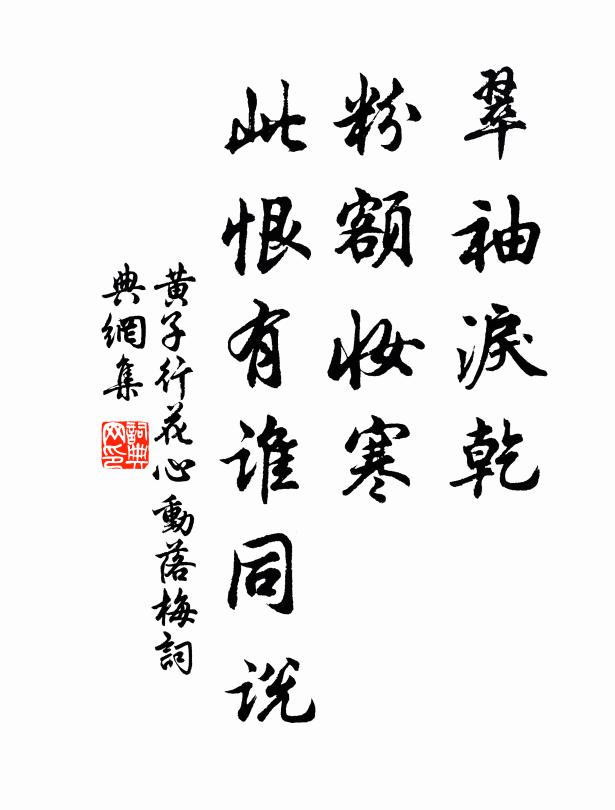 翠袖淚乾
粉額妝寒
此恨有誰同説
黃子行花心動落梅詞
典網集
詞典網印